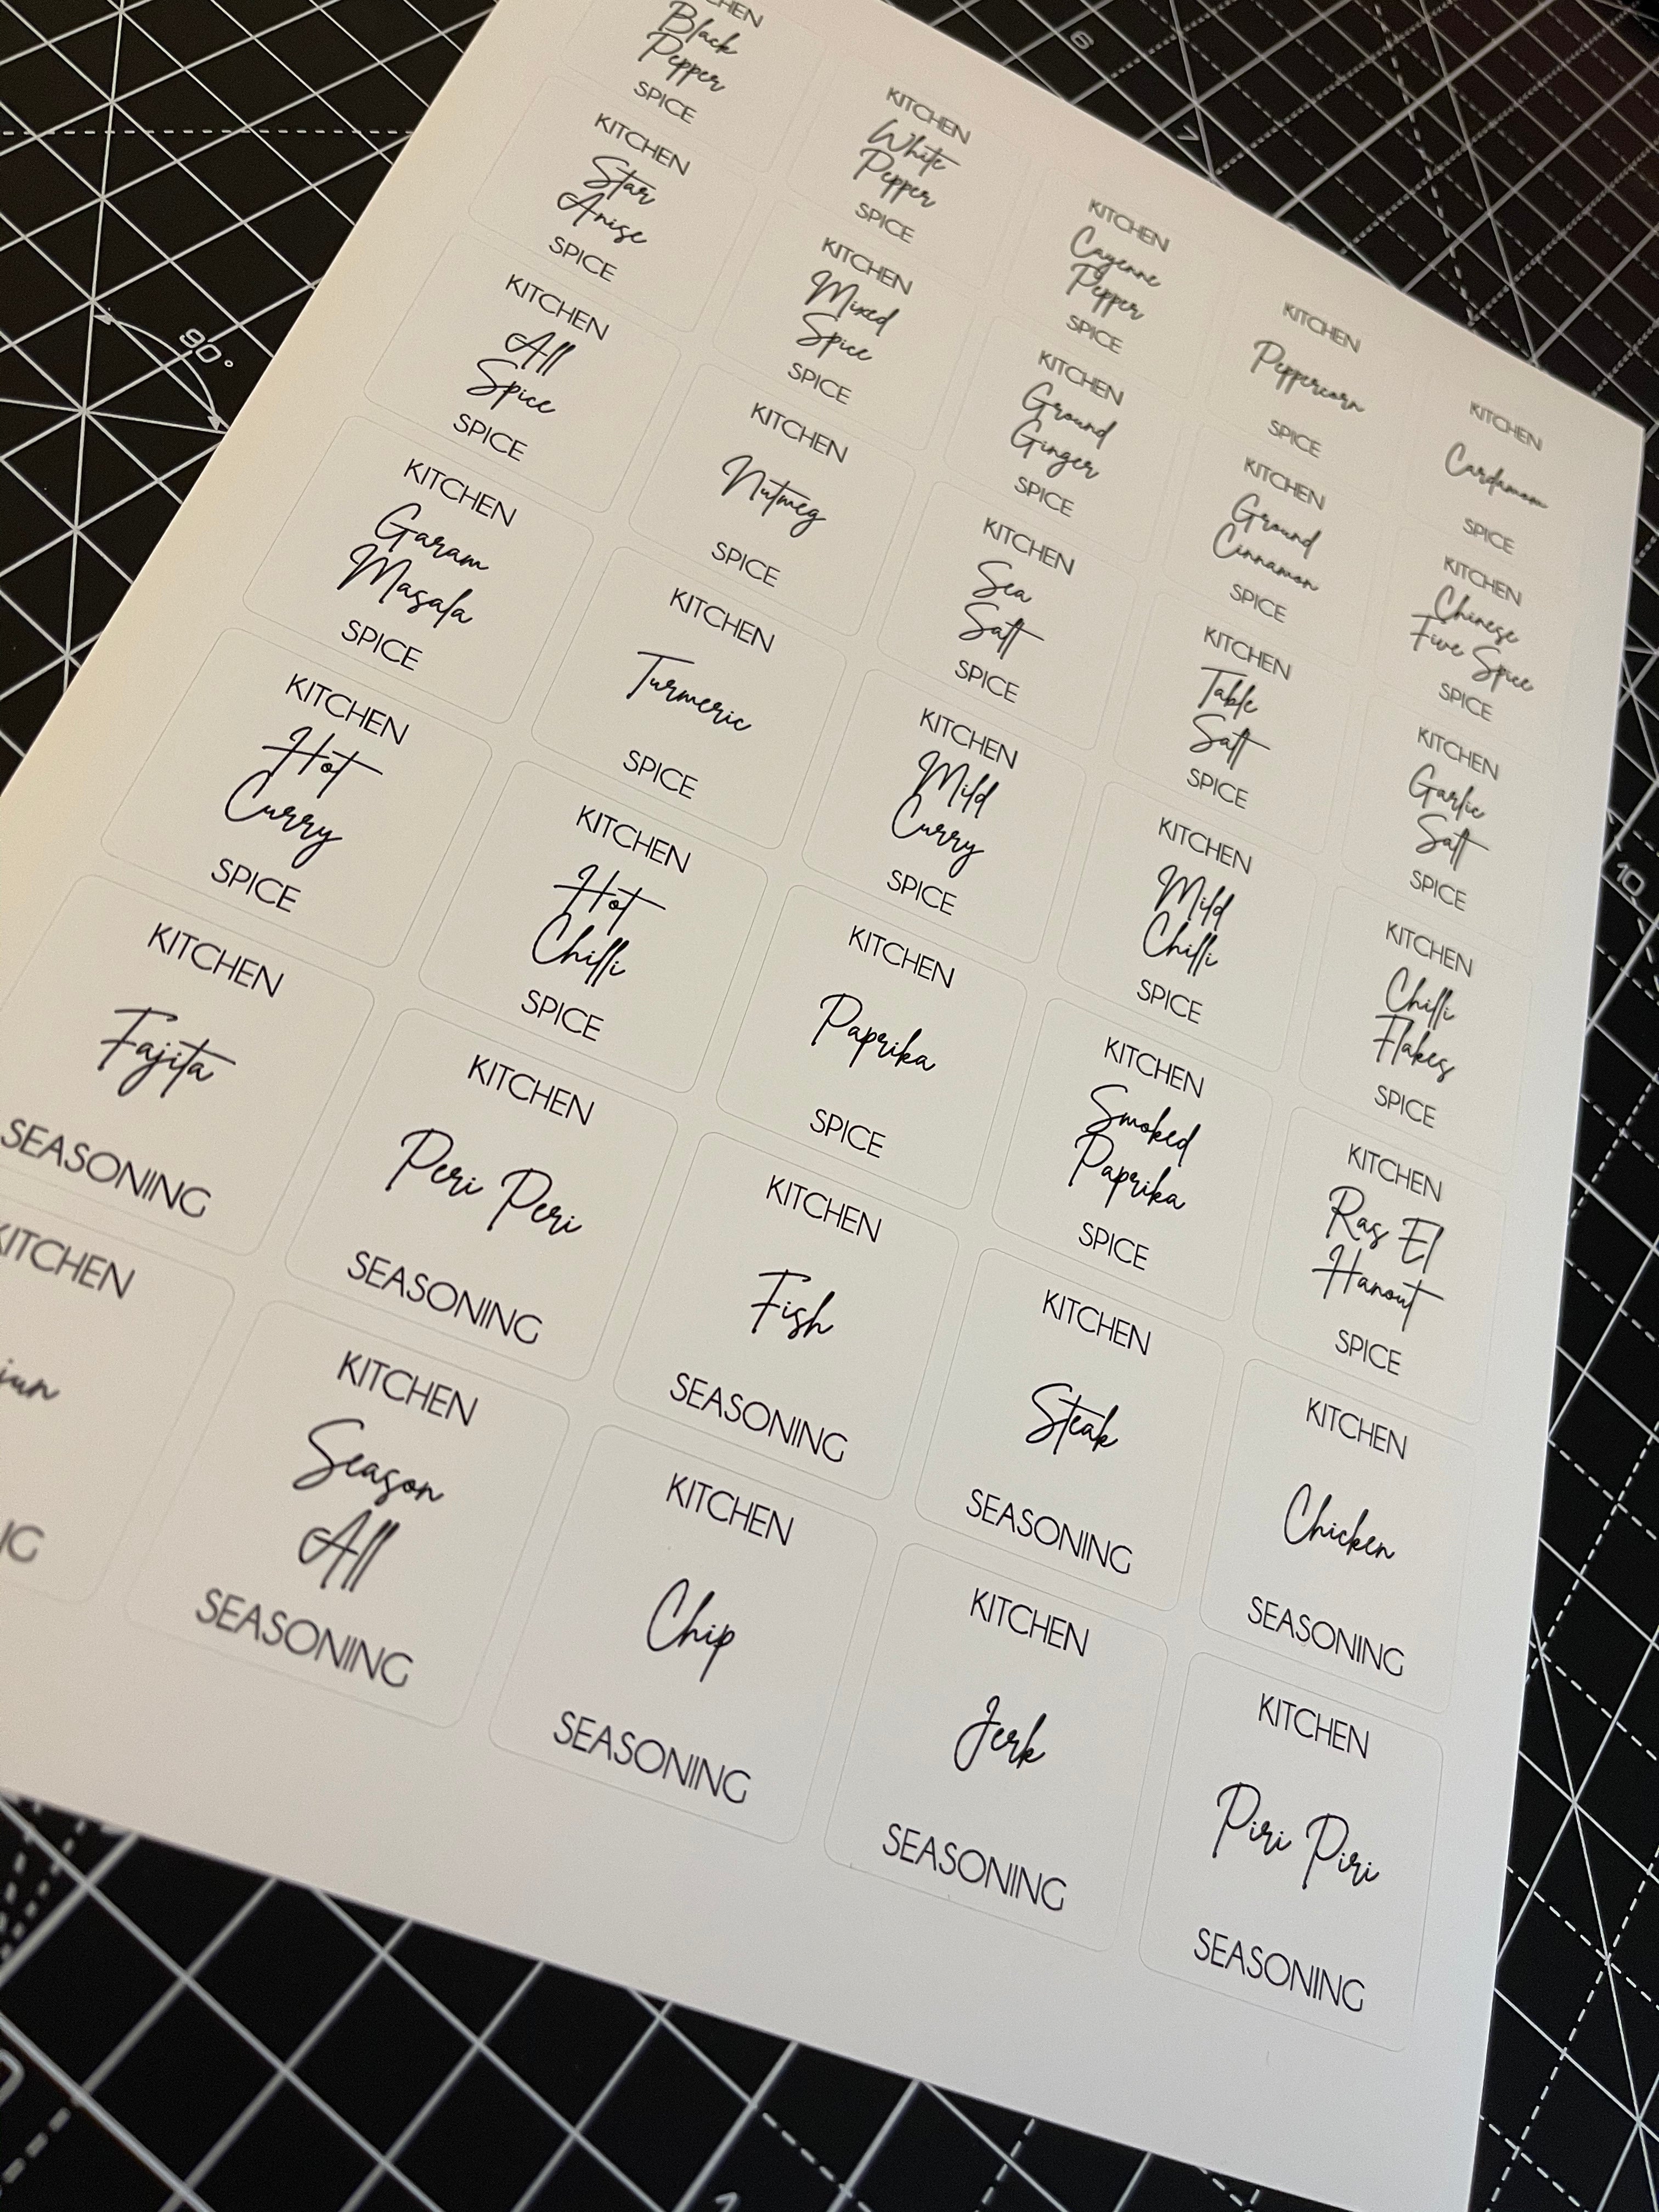 CHEN
Black
Pepper
SPICE
KITCHEN
White
Pepper
SPICE
KITCHEN
Cayenne
Pepper
SPICE
KITCHEN
Peppercorn
SPICE
KITCHEN
Cardamom
SPICE
KITCHEN
Star
Anise
SPICE
KITCHEN
Mixed
Spice
SPICE
KITCHEN
Ground
Ginger
SPICE
KITCHEN
Ground
Cinnamon
SPICE
KITCHEN
Chinese
Five Spice
SPICE
KITCHEN
All
Spice
SPICE
KITCHEN
Nutmeg
SPICE
KITCHEN
Sea
Salt
SPICE
KITCHEN
Table
Salt
SPICE
KITCHEN
Garlic
Salt
SPICE
KITCHEN
Garam
Masala
SPICE
KITCHEN
Turmeric
SPICE
KITCHEN
Mild
Curry
SPICE
KITCHEN
Mild
Chilli
SPICE
KITCHEN
Chilli
Flakes
SPICE
KITCHEN
Hot
Curry
SPICE
KITCHEN
Hot
Chilli
SPICE
KITCHEN
Paprika
SPICE
KITCHEN
Smoked
Paprika
SPICE
KITCHEN
Ras El
Hanout
SPICE
KITCHEN
Fajita
SEASONING
KITCHEN
Peri Peri
SEASONING
KITCHEN
Fish
SEASONING
KITCHEN
Steak
SEASONING
KITCHEN
Chicken
SEASONING
KITCHEN
jun
KITCHEN
Season
All
SEASONING
KITCHEN
Chip
SEASONING
KITCHEN
Jerk
SEASONING
KITCHEN
Piri Piri
SEASONING
90°
6
7
10